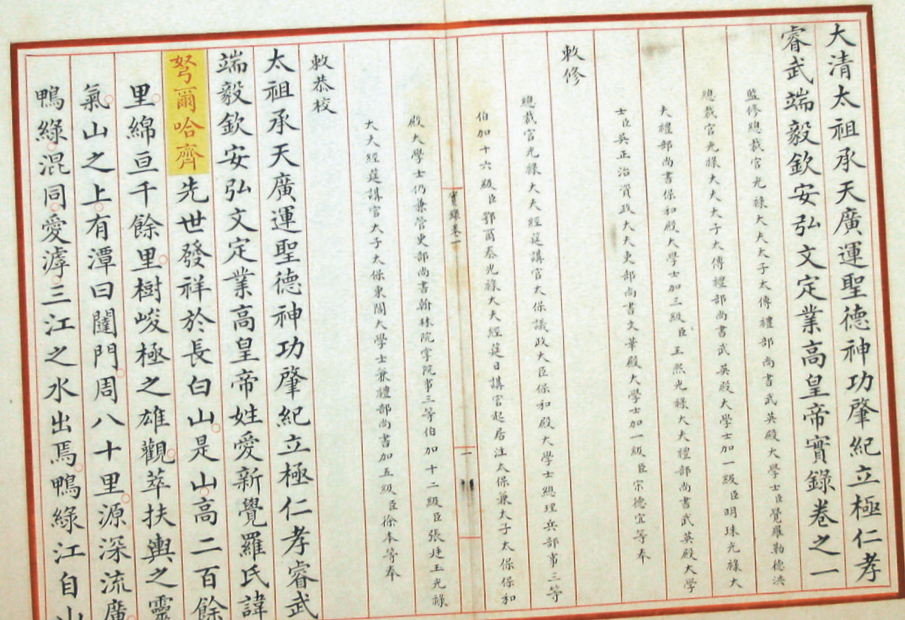 大清太祖承天廣運聖德神功肇紀立極仁孝
睿武端毅欽安弘文定業高皇帝實錄卷之一
監修總裁官光祿大夫太子太傅禮部尚書武英殿大學士臣覺羅勒德洪
總裁官光祿大夫太子太傅禮部尚書武英殿大學士加一級臣明珠光祿大
夫禮部尚書保和殿大學士加三級臣王熙光祿大夫禮部尚書武英殿大學
士臣吳正治資政大夫吏部尚書文華殿大學士加一級臣宋德宜等奉
敕修
總裁官光祿大夫經筵講官太保議政大臣保和殿大學士總理兵部事三等
伯加十六級臣鄂爾泰光祿大夫經筵日講官起居注太保兼太子太保保和
殿大學士仍兼管吏部尚書翰林院掌院事三等伯加十二級臣張廷玉光祿
大夫經筵講官太子太保東閣大學士兼禮部尚書加五級臣徐本等奉
敕恭校
實錄卷一
一
太祖承天廣運聖德神功肇紀立極仁孝睿武
端毅欽安弘文定業高皇帝姓愛新覺羅氏諱
弩爾哈齊先世發祥於長白山是山高二百餘
里綿亘千餘里樹峻極之雄觀萃扶輿之靈
氣山之上有潭曰闥門周八十里源深流廣
鴨綠混同愛滹三江之水出焉鴨綠江自山